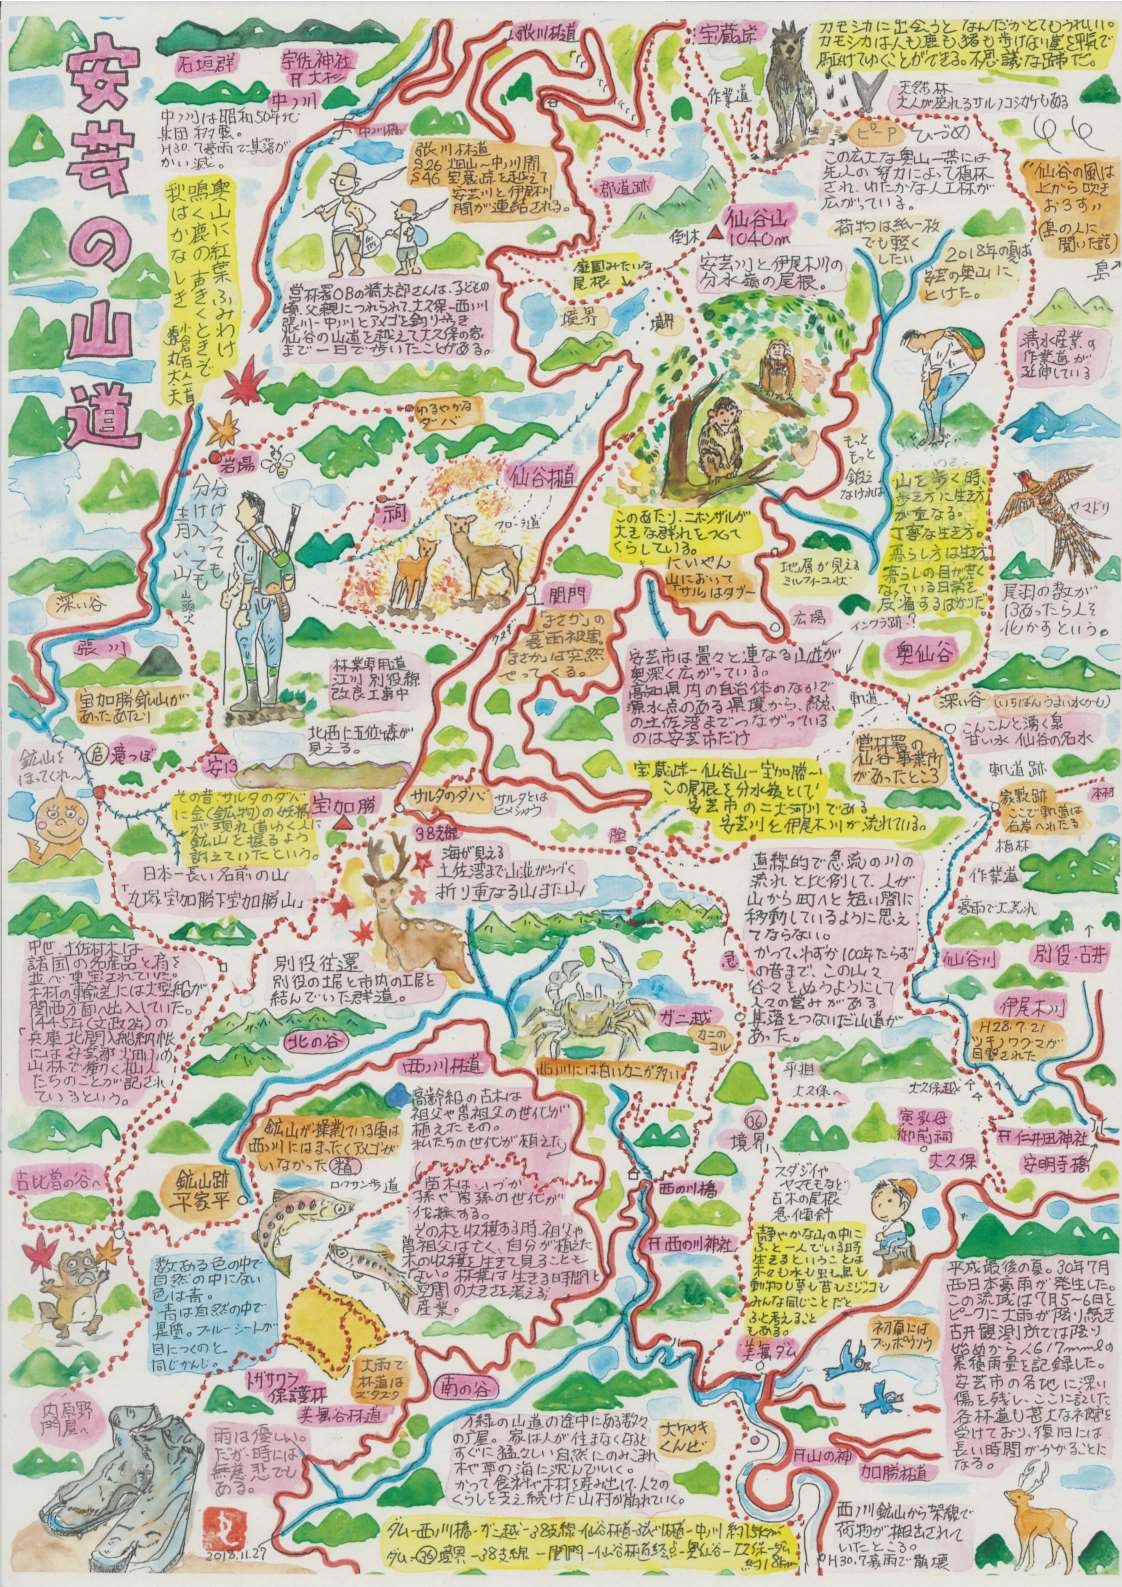 安芸の山道
石垣群
宇佐神社
大杉
中ノ川
中ノ川は昭和50年代
集団移転。
H30.7豪雨で集落が
かい滅。
奥山に紅葉ふみわけ
鳴く鹿の声きくときぞ
秋はかなしき
小倉百人一首
猿丸太夫
張川林道
張川林道
S26 畑山〜中ノ川間
S46 宝蔵峠を越えて
安芸川と伊尾木川
間が連結される。
郡道跡
宝蔵峠
作業道
カモシカに出会うと なんだかとてもうれしい。
カモシカは人も鹿も猪も歩けない崖を平気で
駆けてゆくことができる。不思議な蹄だ。
天然林
大人が座れるサルノコシカケもある
ひづめ
この広大な奥山一帯には
先人の努力によって植林
され、ゆたかな人工林が
広がっている。
"仙谷の風は
上から吹き
おろす"
(島の人に
聞いた話)
島→
仙谷山
1040m
倒木
荷物は紙一枚
でも軽く
したい
2018年の夏は
安芸の奥山に
とけた。
安芸川と伊尾木川の
分水嶺の尾根。
庭園みたいな
尾根
境界
境界
清水産業の
作業道が
延伸している
まで一日で歩いたことがある。
ゆるやかな
ダバ
岩場
分け入っても
分け入っても
青い山
山頭火
祠
仙谷林道
このあたり、ニホンザルが
大きな群れをつくって
くらしている。
にいやん
山において
「サル」はタブー
もっと
もっと
鍛え
なければ
地層が見える
ミルフィーユ状
広場
山を歩く時、
歩き方に生き方
が重なる。
丁寧な生き方。
暮らし方は生き方
反省するばかりだ。
ヤマドリ
尾羽の数が
13あったら人を
化かすという。
深い谷
張川
宝加勝鉱山が
あったあたり
閘門
林業専用道
江川別役線
改良工事中
北西に五位ヶ森が
見える。
安芸市は畳々と連なる山並が
奥深く広がっている。
高知県内の自治体のなかで
源水点のある県境から、
の土佐湾までつながっている
のは安芸市だけ
奥仙谷
軌道
深い谷 (いちばんうまい水かも)
こんこんと湧く泉
甘い水 仙谷の名水
営林署の
仙谷事業所
があったところ
軌道跡
鉱山を
ほってくれ〜
滝つぼ
安13
宝加勝
サルタのダバ
サルタとは
ヒメシャラ
その昔、サルタのダバ
に金(鉱物)の妖精
が現れ道ゆく人に
鉱山を掘るよう
訴えていたという。
宝蔵峠ー仙谷山ー宝加勝〜
この尾根を分水嶺として
安芸市の二大河川である
安芸川と伊尾木川が流れている。
家敷跡
ここで軌道は
右岸へわたる
植林
作業道
日本一長い名前の山
「九塚宝加勝下宝加勝山」
38支線
海が見える
土佐湾まで山並がつづく
折り重なる山また山
直線的で急流の川の
流れと比例して、人が
山から町へと短い間に
移動しているように思え
てならない。
かつて、わずか100年たらず
の昔まで、この山々
谷々をぬうようにして
人々の営みがある
集落をつないだ山道が
あった。
豪雨で大荒れ
仙谷川
別役・古井
伊尾木川
H28.7.21
ツキノワグマが
目撃された
中世、土佐材木は
諸国の名産品と肩を
並べ重宝されていた。
木材の輸送には大型船が
関西方面へ出入していた。
1445年(文安2年)の
兵庫北関入船納帳
山林で働く杣人
たちのことが記され
ているという。
別役往還
別役の土居と市内の土居と
結んでいた郡道。
北の谷
急
ガニ越
カニの
コレ
西ノ川には白いカニが多い
平坦
大久保へ
大久保越
西ノ川林道
高齢級の古木は
祖父や曽祖父の世代が
植えたもの。
私たちの世代が植えた
苗木はいつか
孫や曽孫の世代が
伐採する。
その木を収穫する時、祖父や
曽祖父は亡く、自分が植えた
木の収穫を生きて見ることも
ない。林業は生きる時間と
空間の大きさを考える
産業。
鉱山が操業している頃は
西ノ川にはまったくアメゴが
いなかった
ロウソン歩道
古比曽の谷へ
鉱山跡
平家平
36
境界
仁井田神社
安明寺橋
大久保
西の川橋
西の川神社
スダジイや
ヤマモモなど
古木の尾根
急・傾斜
静やかな山の中に
ふと一人でいる時
生きるということは
木も水も虫も鳥も
動物も草も苔もミジンコも
みんな同じことだと
ふと考えること
もある。
美舞ダム
初夏には
ブッポウソウ
平成最後の夏。30年7月
西日本豪雨が発生した。
この流域は7月5〜6日を
ピークに大雨が降り続き
古井観測所では降り
累積雨量を記録した。
安芸市の各地に深い
傷を残し、ここに記した
各林道も甚大な被害を
受けており、復旧には
長い時間がかかることに
なる。
数ある色の中で
自然の中にない
色は青。
青は自然の中で
異質。ブルーシートが
目につくのと
同じかんじ。
トガサワラ
保護林
美舞谷林道
大雨で
林道は
ズタズタ
南の谷
内原野
門屋へ
雨は優しい。
だが、時には
無慈悲でも
ある。
万緑の山道の途中にある数々
の戸屋。家は人が住まなくなると
すぐに猛々しい自然にのみこまれ
木や草の海に沈んでいく。
かつて食料や木材を産み出して、人々の
くらしを支え続けた山村が崩れていく。
大ケヤキ
くんせい
山の神
加勝林道
西ノ川鉱山から架線で
荷物が搬出されて
いたところ。
H30.7豪雨で崩壊
2018.11.27
ダムー西ノ川橋ーガニ越ー38支線ー仙谷林道ー張川林道ー中ノ川 約15km